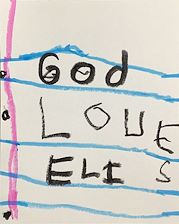 God
LOUE
ELI S